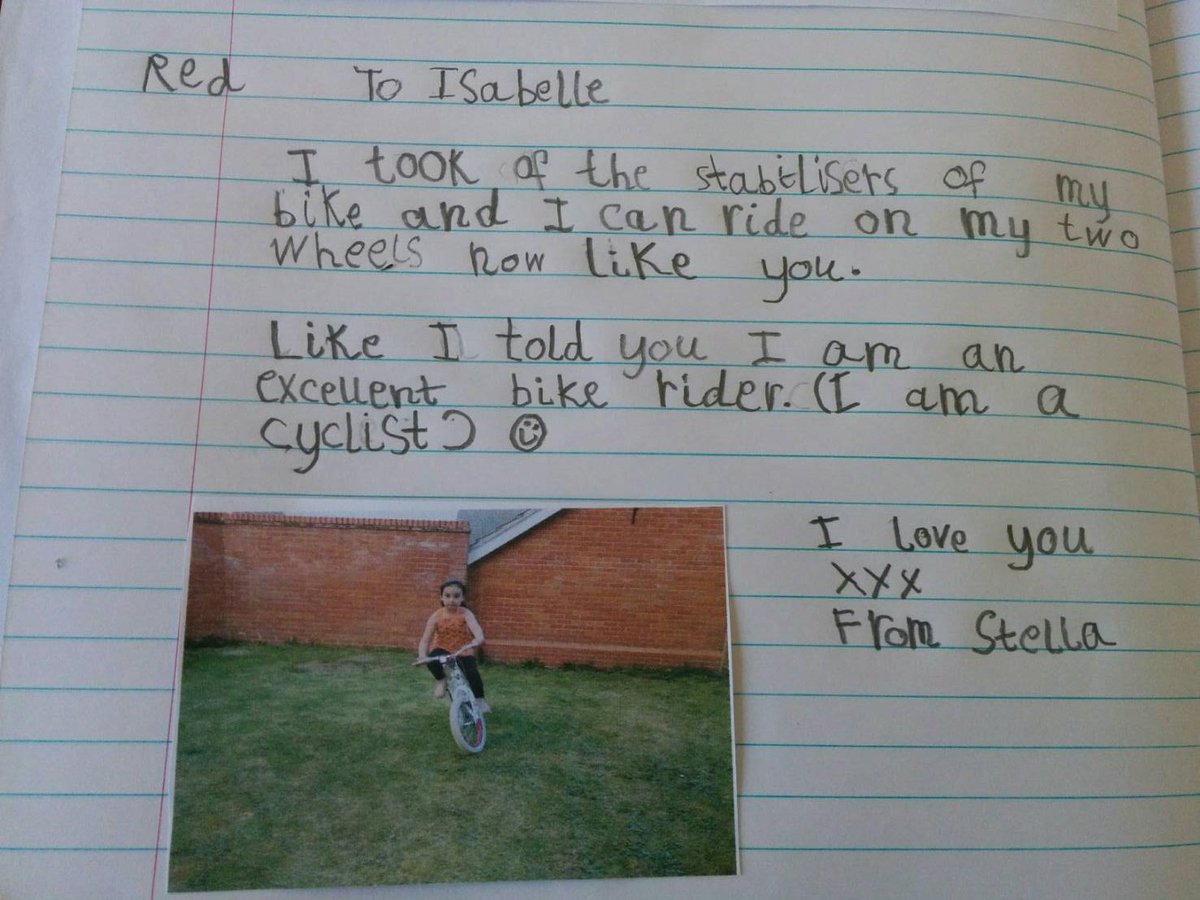 Red To Isabelle
I took of the stabilisers of my
bike and I can ride on my two
wheels now like you.
Like I told you I am an
excellent bike rider. (I am a
cyclist) ☺
I love you
xxx
From Stella